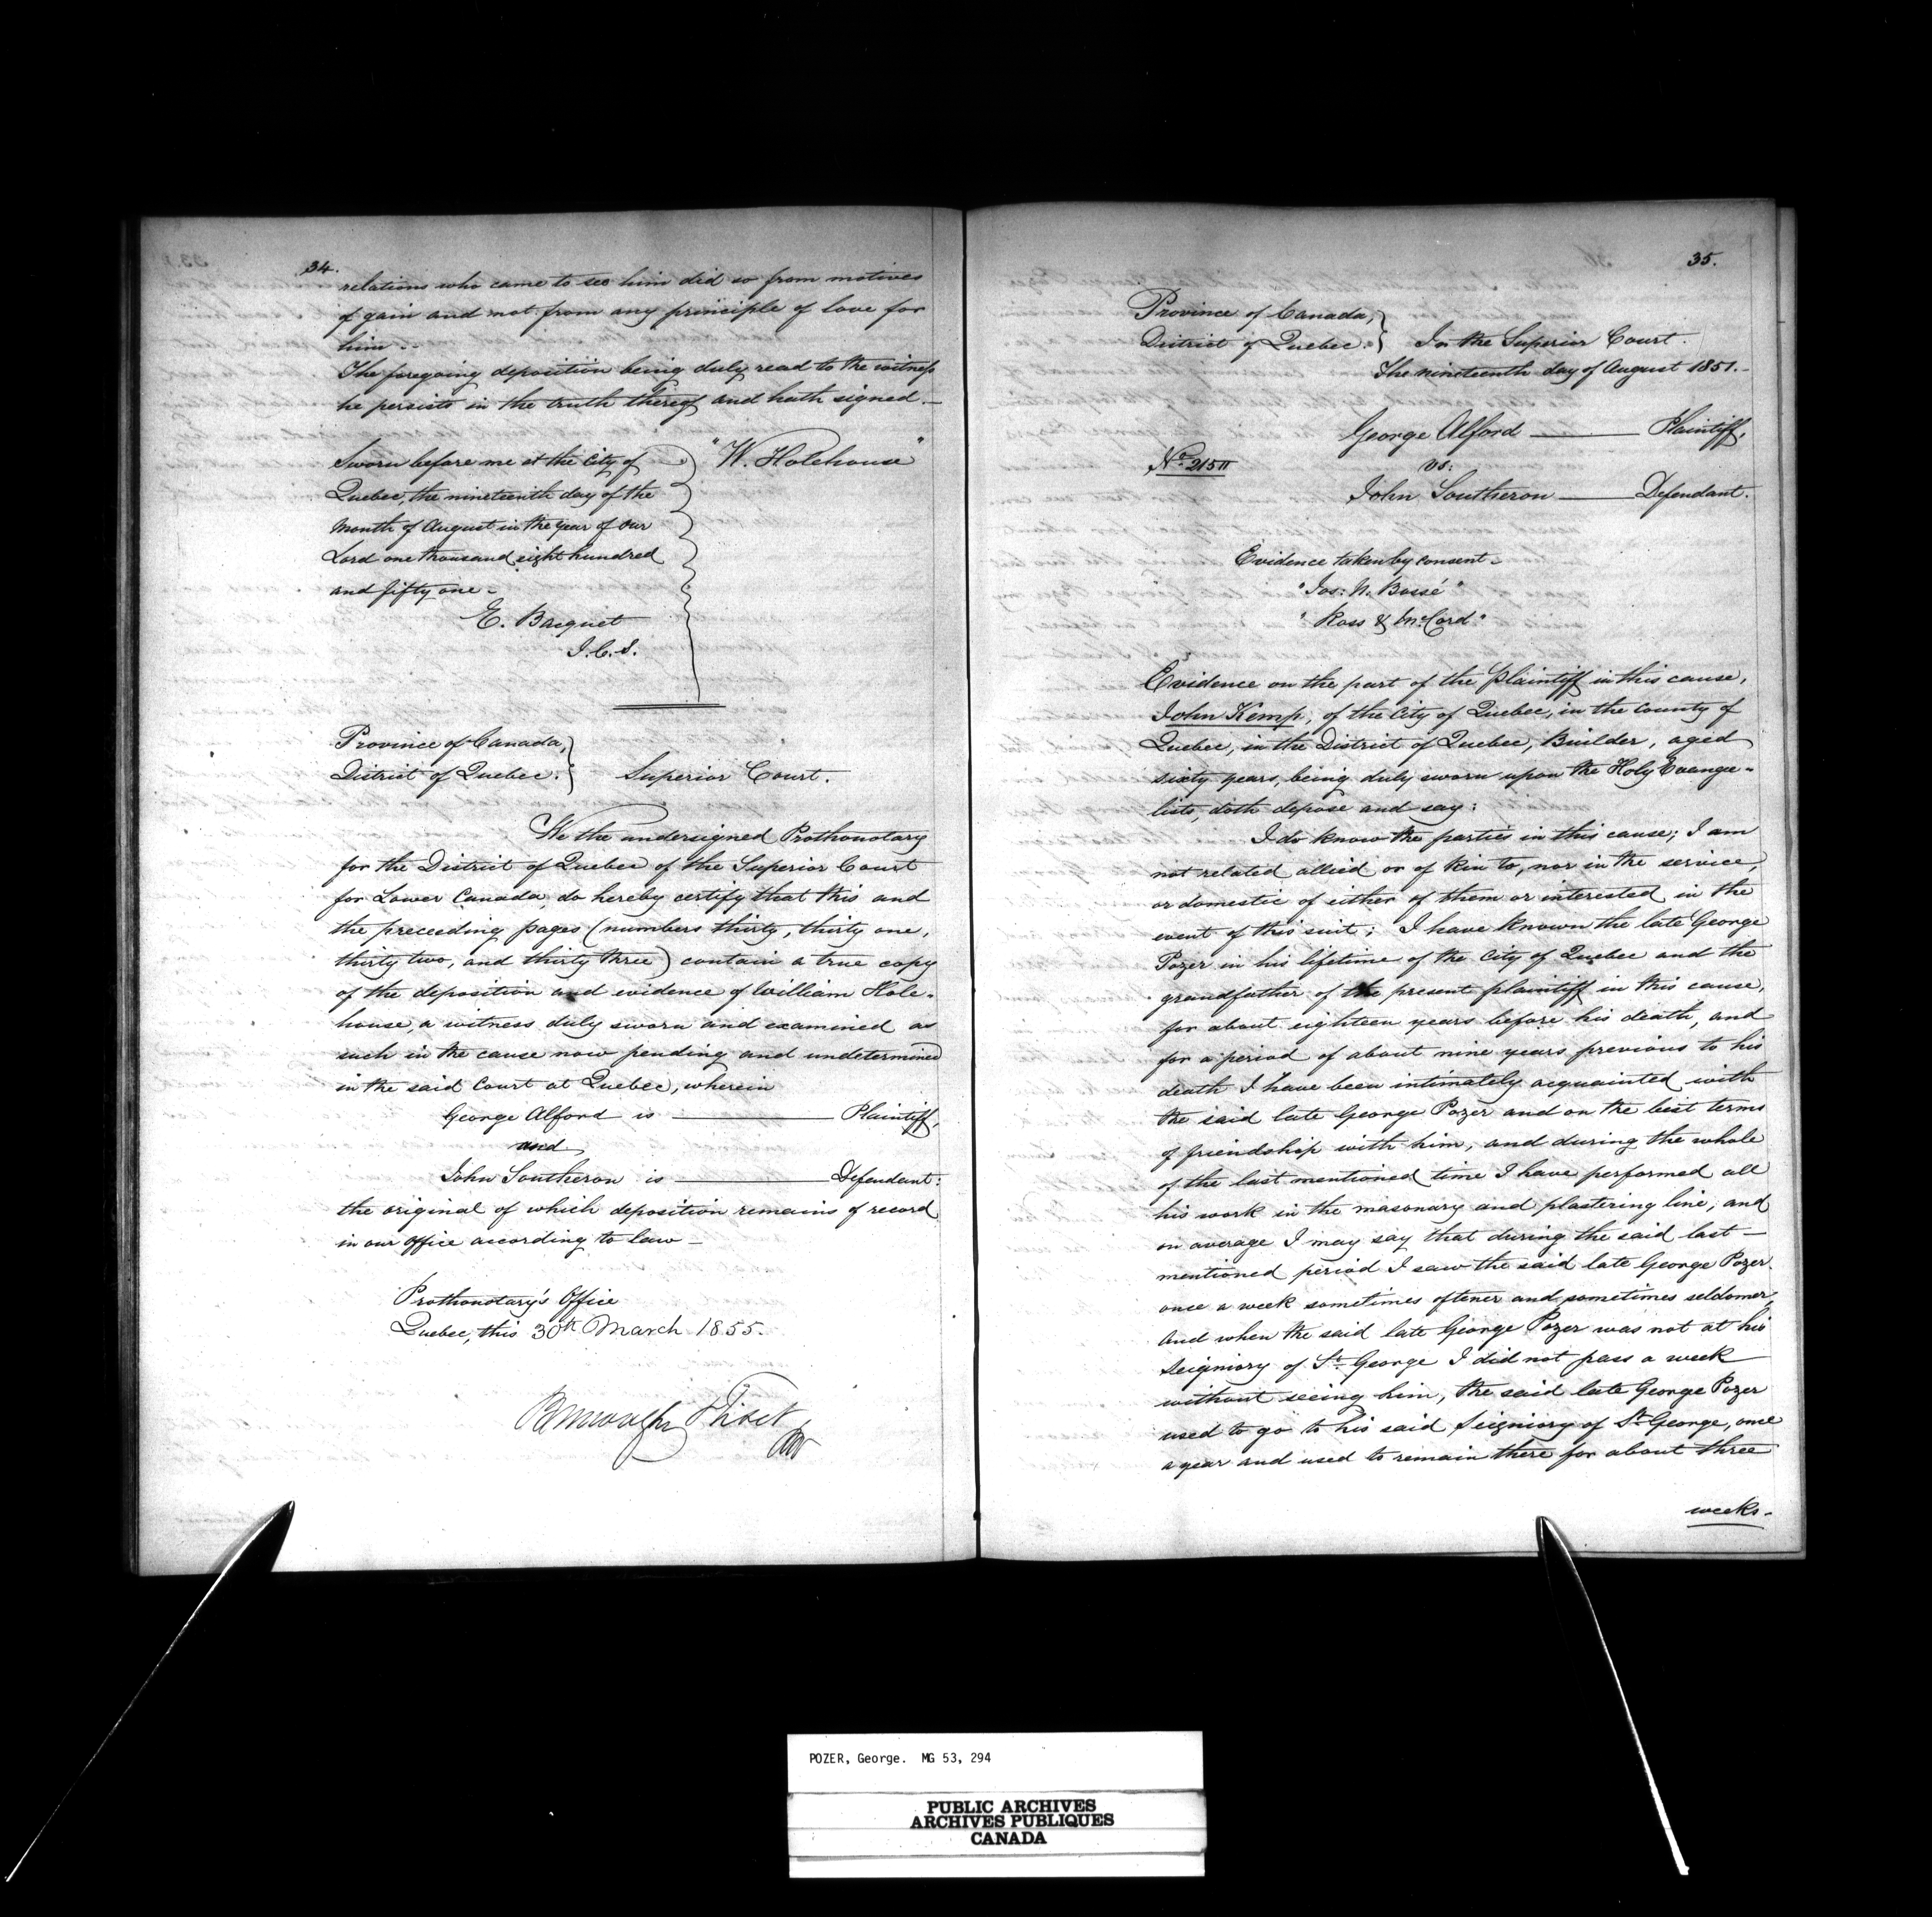 34.
relations who came to see him did so from motives
of gain and not from any principle of love for
him --
The foregoing deposition being duly read to the witness
he persists in the truth thereof and hath signed. —
Sworn before me at the City of
Quebec, the nineteenth day of the
Month of August in the year of our
Lord one thousand eight hundred
and fifty one -
"W. Holehouse"
E. Bacquet
J.C.S.
Province of Canada,
District of Quebec.
Superior Court.
We the undersigned Prothonotary
for the District of Quebec of the Superior Court
for Lower Canada, do hereby certify that this and
the preceeding pages (numbers thirty, thirty one,
thirty two, and thirty three) contain a true copy
of the deposition and evidence of William Hole-
house, a witness duly sworn and examined as
such in the cause now pending and undetermined
in the said Court at Quebec, wherein
George Alford is ——— Plaintiff,
and
John Southeron is ——— Defendant:
the original of which deposition remains of record
in our office according to law —
Prothonotary's Office
Quebec, this 30th March 1855.
35.
Province of Canada,
District of Quebec.
In the Superior Court.
The nineteenth day of August 1851.-
George Alford ——— Plaintiff,
No. 215
vs:
John Southeron ——— Defendant.
Evidence taken by consent -
"Jos: N. Bossé"
"Ross & McCord"
Evidence on the part of the Plaintiff in this cause,
John Kemp, of the City of Quebec, in the County of
Quebec, in the District of Quebec, Builder, aged
sixty years, being duly sworn upon the Holy Evange-
lists, doth depose and say:
I do know the parties in this cause; I am
not related allied or of kin to, nor in the service,
or domestic of either of them or interested in the
event of this suit; I have known the late George
Pozer in his lifetime of the City of Quebec and the
grandfather of the present plaintiff in this cause,
for about eighteen years before his death, and
for a period of about nine years previous to his
death I have been intimately acquainted with
the said late George Pozer and on the best terms
of friendship with him, and during the whole
of the last mentioned time I have performed all
his work in the masonary and plastering line, and
on average I may say that during the said last —
mentioned period I saw the said late George Pozer
once a week sometimes oftener and sometimes seldomer,
And when the said late George Pozer was not at his
Seigniory of St. George I did not pass a week
without seeing him, the said late George Pozer
used to go to his said Seigniory of St. George, once
a year and used to remain there for about three
weeks-
POZER, George. MG 53, 294
PUBLIC ARCHIVES
ARCHIVES PUBLIQUES
CANADA